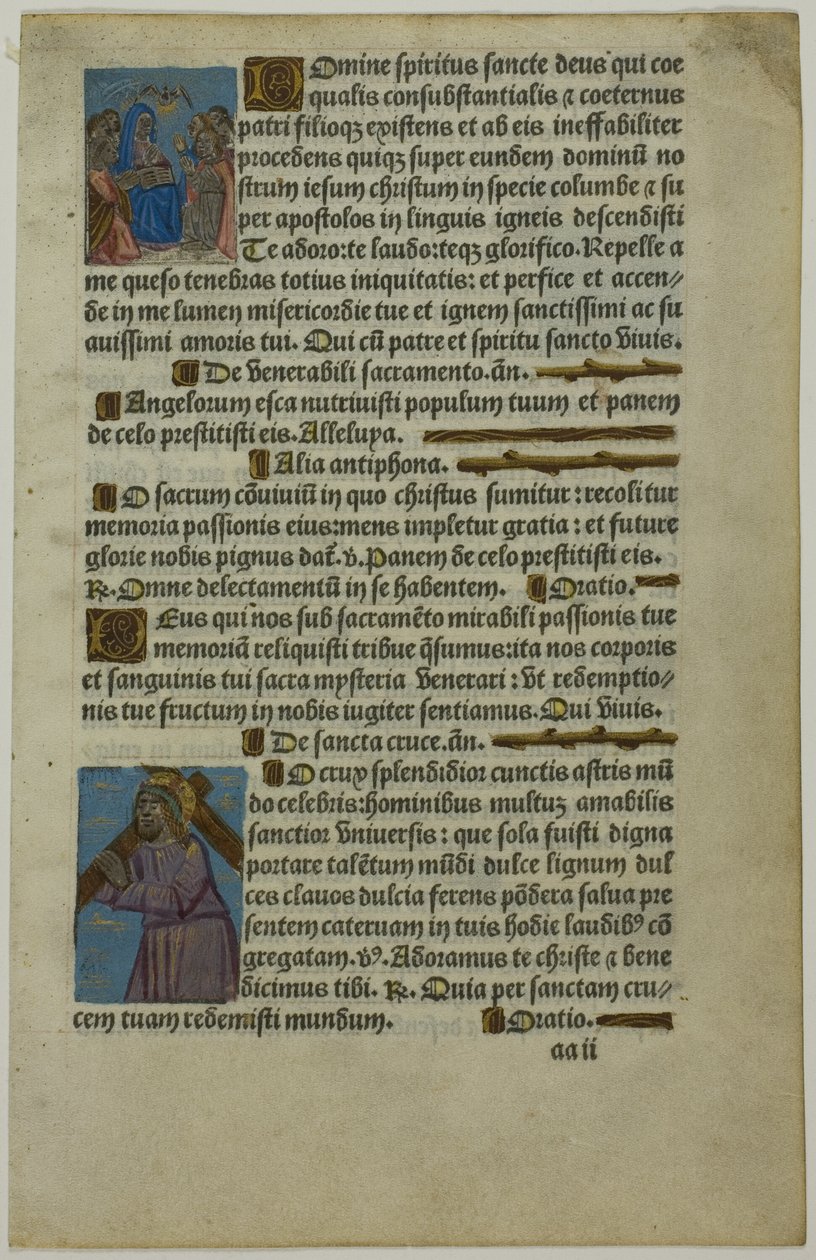 DOmine spiritus sancte deus qui coe
qualis consubstantialis ⁊ coeternus
patri filioqꝫ existens et ab eis ineffabiliter
procedens quiqꝫ super eundem dominū no
strum iesum christum in specie columbe ⁊ su
per apostolos in linguis igneis descendisti
Te adoro:te laudo:teqꝫ glorifico. Repelle a
me queso tenebras totius iniquitatis: et perfice et accen⸗
de in me lumen misericordie tue et ignem sanctissimi ac su
auissimi amoris tui. Qui cū patre et spiritu sancto viuis.
¶ De venerabili sacramento.añ.
¶ Angelorum esca nutriuisti populum tuum et panem
de celo prestitisti eis. Alleluya.
¶ Alia antiphona.
¶ O sacrum cōuiuiū in quo christus sumitur:recolitur
memoria passionis eius:mens impletur gratia: et future
glorie nobis pignus dat̄. v̄. Panem de celo prestitisti eis.
℟. Omne delectamentū in se habentem. ¶ Oratio.
DEus qui nos sub sacramēto mirabili passionis tue
memoriā reliquisti tribue q̄sumus:ita nos corporis
et sanguinis tui sacra mysteria venerari: vt redemptio⸗
nis tue fructum in nobis iugiter sentiamus. Qui viuis.
¶ De sancta cruce.añ.
¶ O crux splendidior cunctis astris mū
do celebris:hominibus multuꝫ amabilis
sanctior vniuersis: que sola fuisti digna
portare talētum mūdi dulce lignum dul
ces clauos dulcia ferens pōdera salua pre
sentem cateruam in tuis hodie laudibꝰ cō
gregatam. vꝰ. Adoramus te christe ⁊ bene
dicimus tibi. ℟. Quia per sanctam cru⸗
cem tuam redemisti mundum. ¶ Oratio.
aa ii